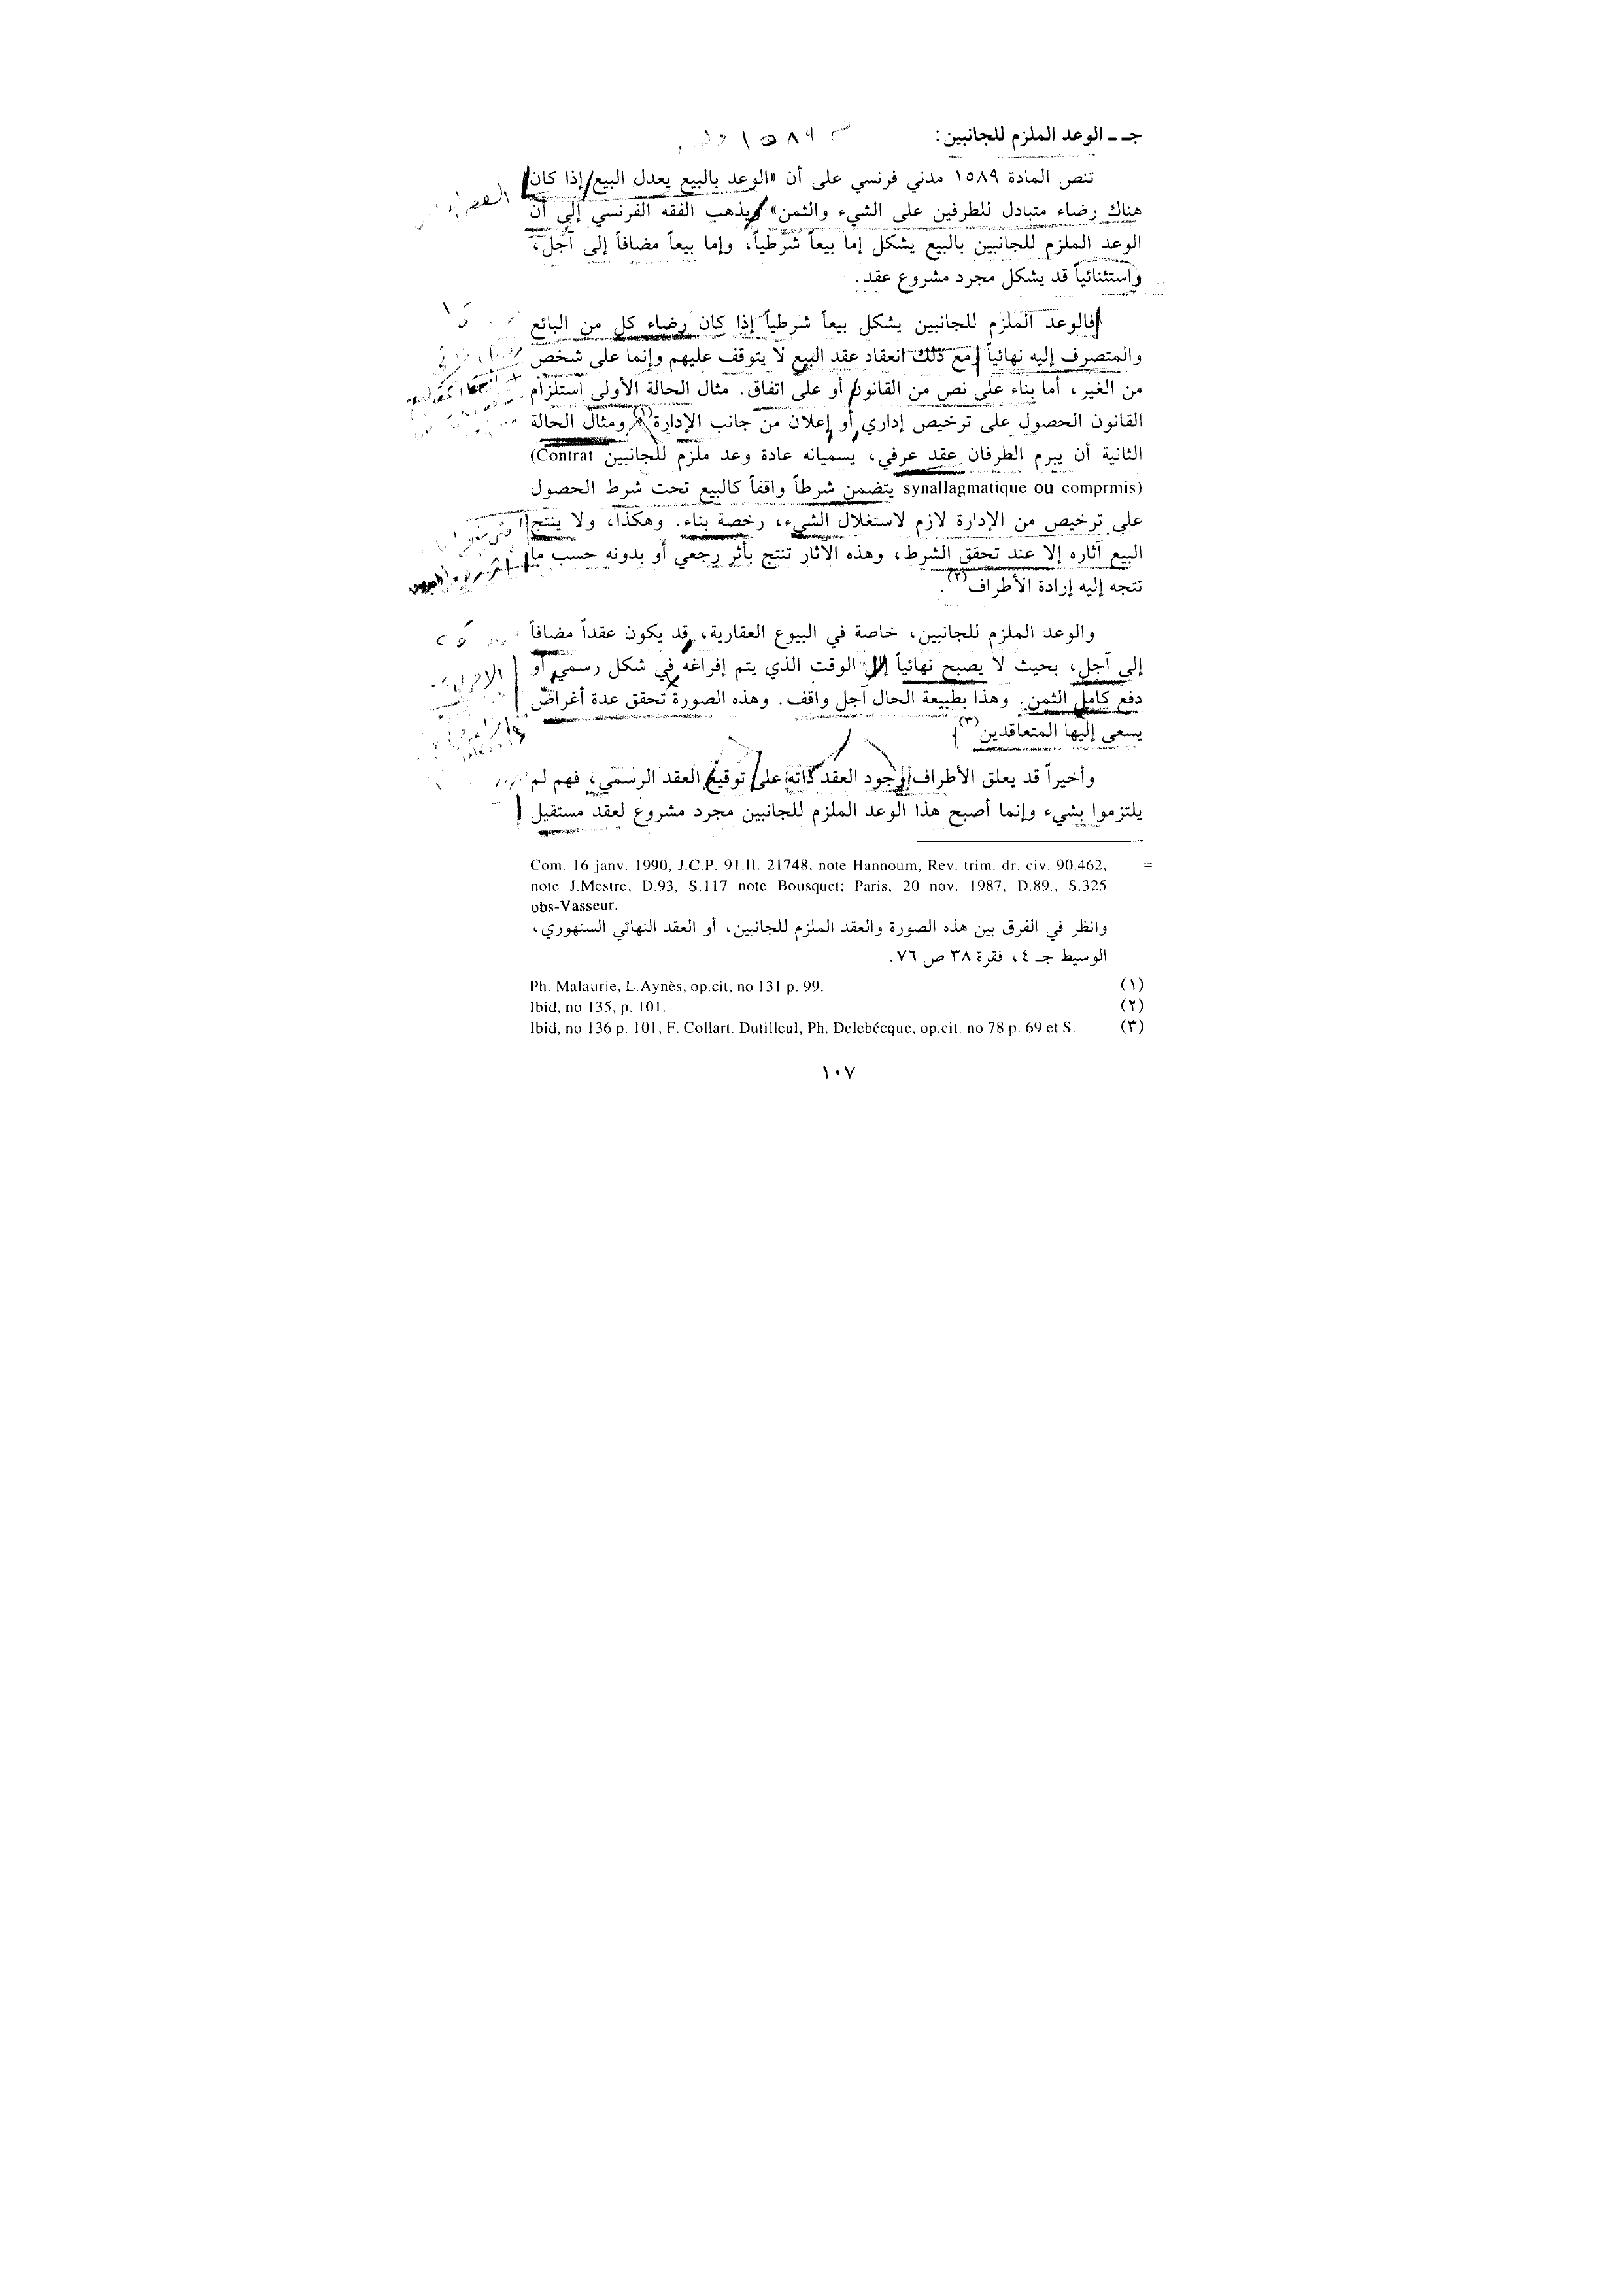 جـ ـ الوعد الملزم للجانبين:
١٥٨٩
تنص المادة ١٥٨٩ مدني فرنسي على أن «الوعد بالبيع يعدل البيع إذا كان
هناك رضاء متبادل للطرفين على الشيء والثمن» ويذهب الفقه الفرنسي إلى أن
الوعد الملزم للجانبين بالبيع يشكل إما بيعاً شرطياً، وإما بيعاً مضافاً إلى آجل،
واستثنائياً قد يشكل مجرد مشروع عقد.
فالوعد الملزم للجانبين يشكل بيعاً شرطياً إذا كان رضاء كل من البائع
والمتصرف إليه نهائياً مع ذلك انعقاد عقد البيع لا يتوقف عليهم وإنما على شخص
من الغير، أما بناء على نص من القانون أو على اتفاق. مثال الحالة الأولى استلزام
القانون الحصول على ترخيص إداري أو إعلان من جانب الإدارة(١) ومثال الحالة
الثانية أن يبرم الطرفان عقد عرفي، يسميانه عادة وعد ملزم للجانبين (Contrat
synallagmatique ou comprmis) يتضمن شرطاً واقفاً كالبيع تحت شرط الحصول
على ترخيص من الإدارة لازم لاستغلال الشيء، رخصة بناء. وهكذا، ولا ينتج
البيع آثاره إلا عند تحقق الشرط، وهذه الآثار تنتج بأثر رجعي أو بدونه حسب ما
تتجه إليه إرادة الأطراف(٢).
والوعد الملزم للجانبين، خاصة في البيوع العقارية، قد يكون عقداً مضافاً
إلى آجل، بحيث لا يصبح نهائياً إلا الوقت الذي يتم إفراغه في شكل رسمي أو
دفع كامل الثمن. وهذا بطبيعة الحال آجل واقف. وهذه الصورة تحقق عدة أغراض
يسعى إليها المتعاقدين(٣)
وأخيراً قد يعلق الأطراف وجود العقد ذاته على توقيع العقد الرسمي، فهم لم
يلتزموا بشيء وإنما أصبح هذا الوعد الملزم للجانبين مجرد مشروع لعقد مستقيل
= Com. 16 janv. 1990, J.C.P. 91.II. 21748, note Hannoum, Rev. trim. dr. civ. 90.462,
note J.Mestre, D.93, S.117 note Bousquet; Paris, 20 nov. 1987, D.89., S.325
obs-Vasseur.
وانظر في الفرق بين هذه الصورة والعقد الملزم للجانبين، أو العقد النهائي السنهوري،
الوسيط جـ ٤، فقرة ٣٨ ص ٧٦.
(١) Ph. Malaurie, L.Aynès, op.cit, no 131 p. 99.
(٢) Ibid, no 135, p. 101.
(٣) Ibid, no 136 p. 101, F. Collart. Dutilleul, Ph. Delebécque, op.cit. no 78 p. 69 et S.
١٠٧